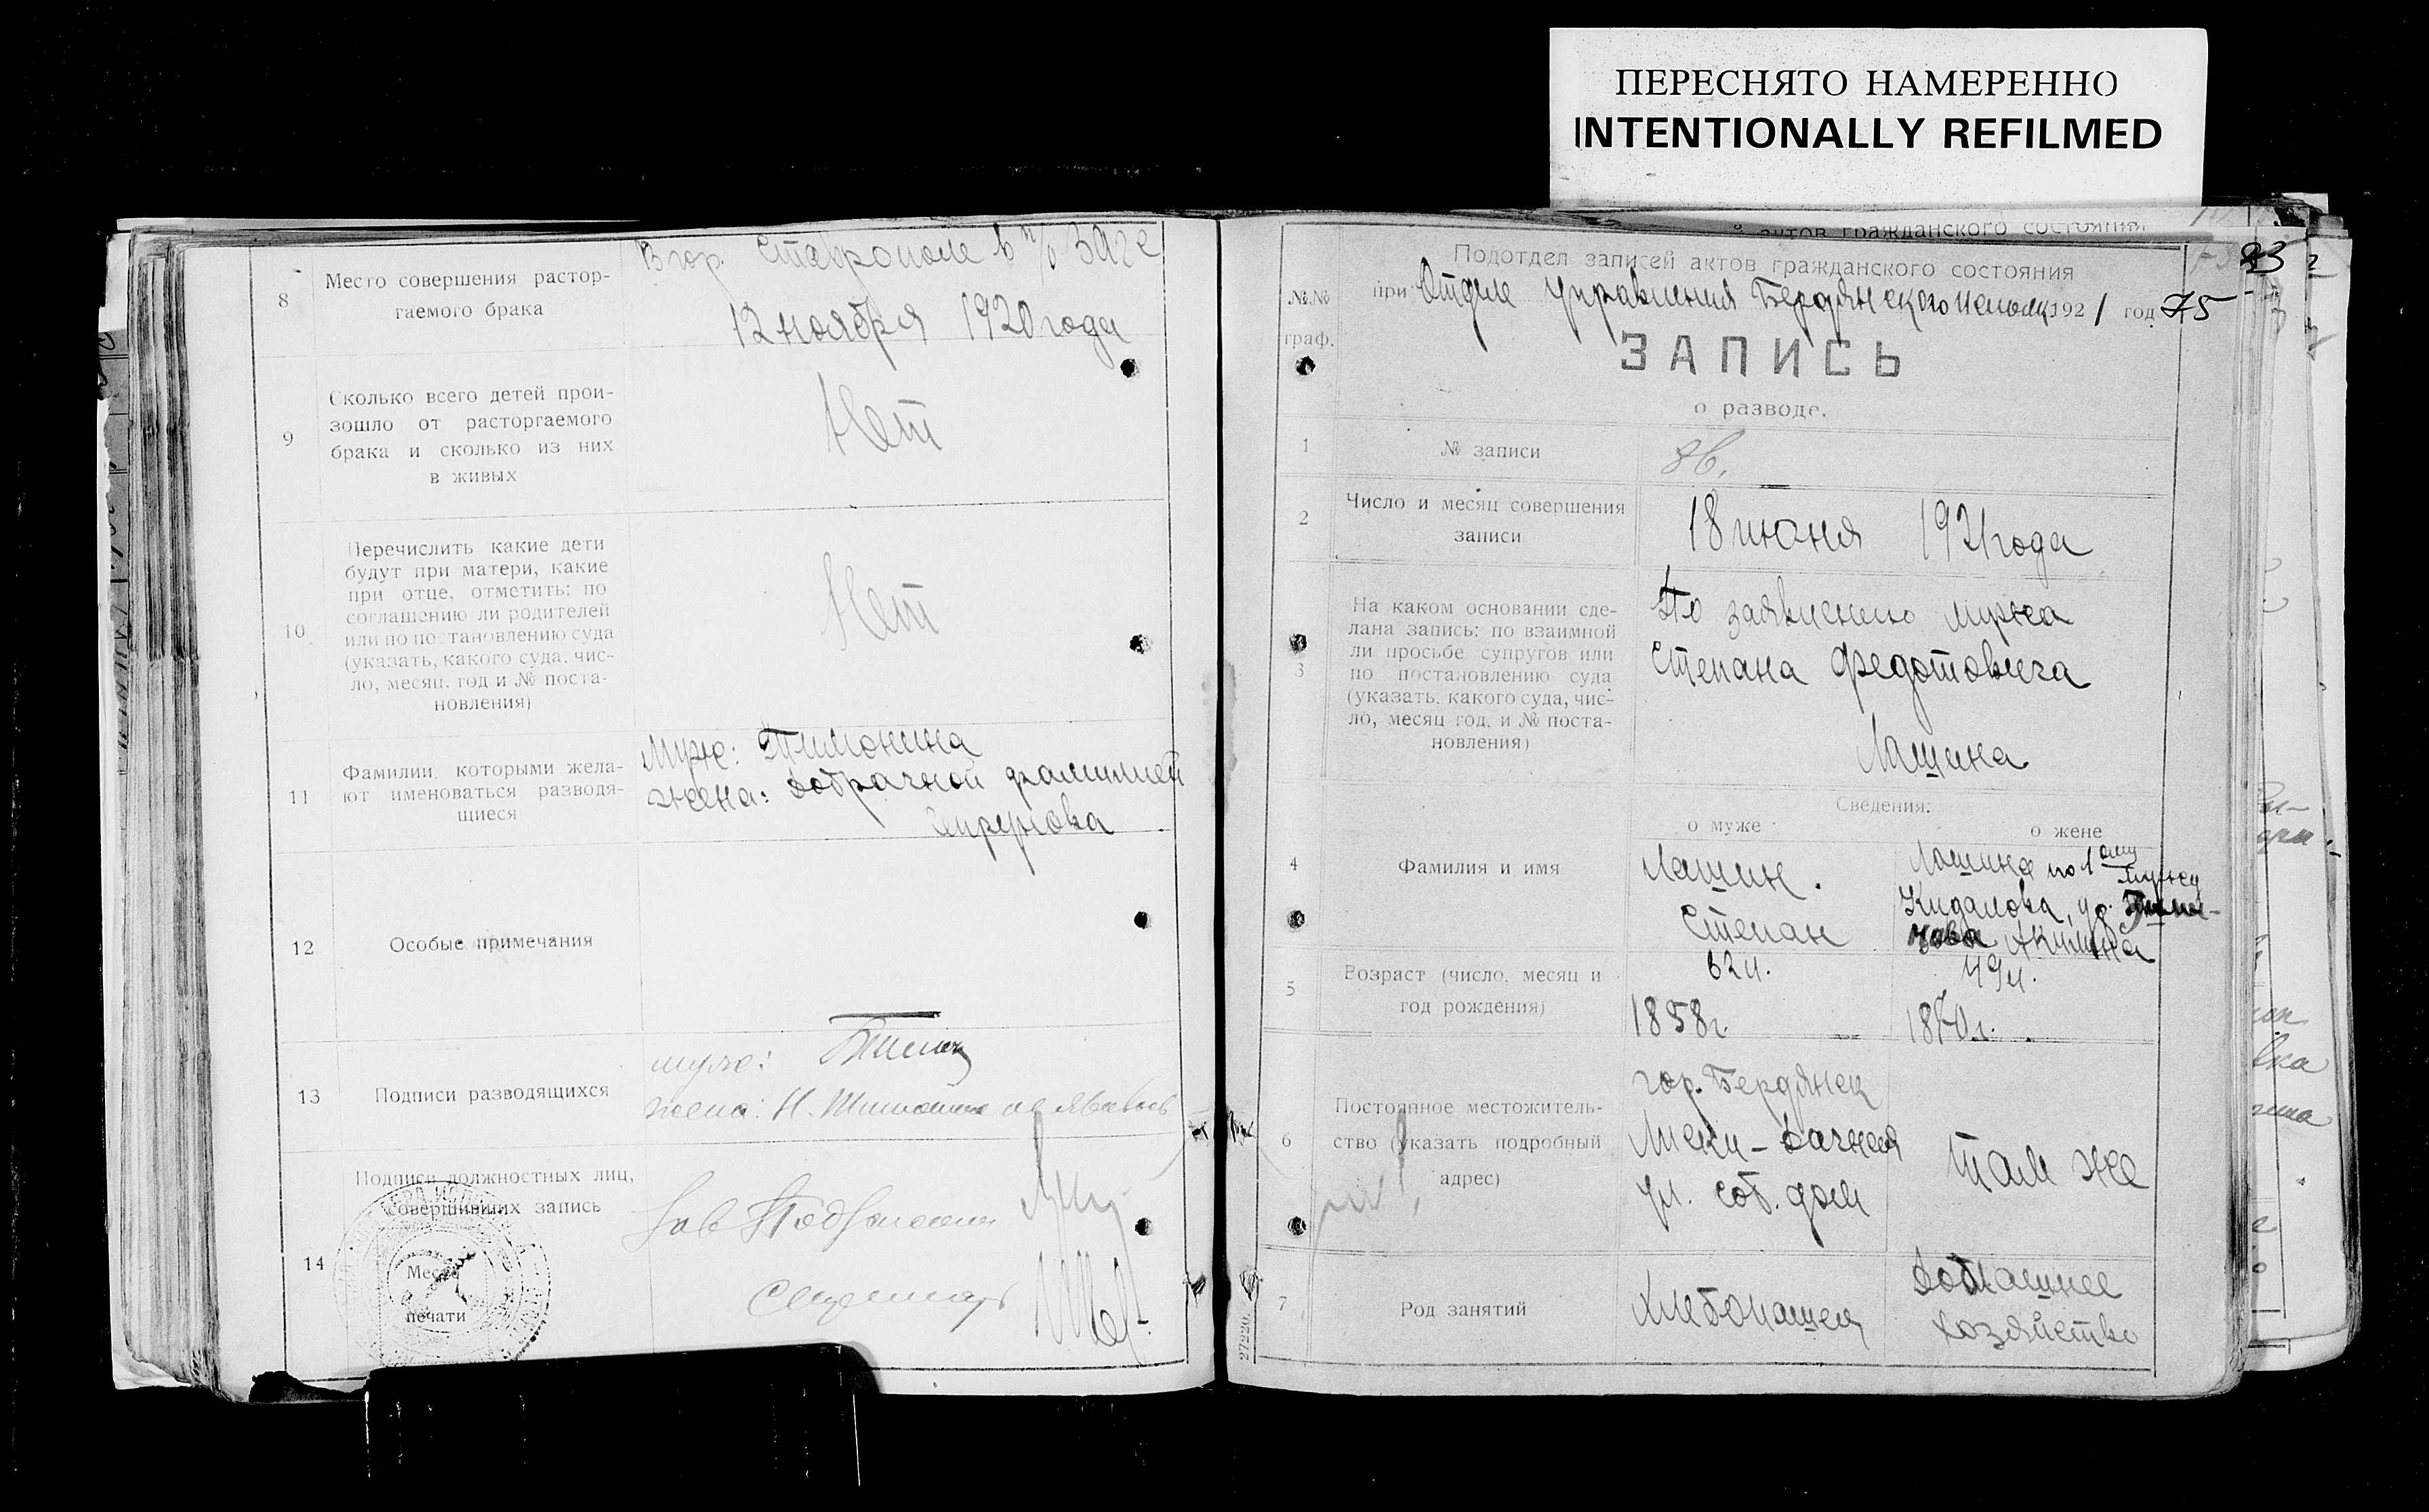 ПЕРЕСНЯТО НАМЕРЕННО
INTENTIONALLY REFILMED
8
Место совершения растор-
гаемого брака
В гор. Ставрополе в п/о ЗАГС
12 ноября 1920 года
9
Сколько всего детей прои-
зошло от расторгаемого
брака и сколько из них
в живых
Нет
10
Перечислить какие дети
будут при матери, какие
при отце, отметить: по
соглашению ли родителей
или по постановлению суда
(указать, какого суда, чис-
ло, месяц, год и № поста-
новления)
Нет
11
Фамилии, которыми жела-
ют именоваться разводя-
щиеся
Муж: Тимонина
жена: добрачной фамилией
12
Особые примечания
13
Подписи разводящихся
муж:
жена: Н.
14
Подписи должностных лиц,
совершивших запись
Место
печати
Зав
актов гражданского состояния
83
Подотдел записей актов гражданского состояния
№№
граф.
при Отделе Управления Бердянского 1921 год 75
ЗАПИСЬ
о разводе.
1
№ записи
86.
2
Число и месяц совершения
записи
18 июня 1921 года
3
На каком основании сде-
лана запись: по взаимной
ли просьбе супругов или
по постановлению суда
(указать, какого суда, чис-
ло, месяц год, и № поста-
новления)
По заявлению мужа
Степана Федотовича
Лашина
Сведения:
о муже
о жене
4
Фамилия и имя
Лашин.
Степан
Лашина по 1 ому
мужу
Кидалова, ур.
Акилина
5
Возраст (число, месяц и
год рождения)
62 л.
1858 г.
49 л.
1870 г.
6
Постоянное местожитель-
ство (указать подробный
адрес)
гор. Бердянск
Лиски - Дачная
ул. соб. дом
там же
7
Род занятий
Хлебопашец
Домашнее
хозяйство
27220